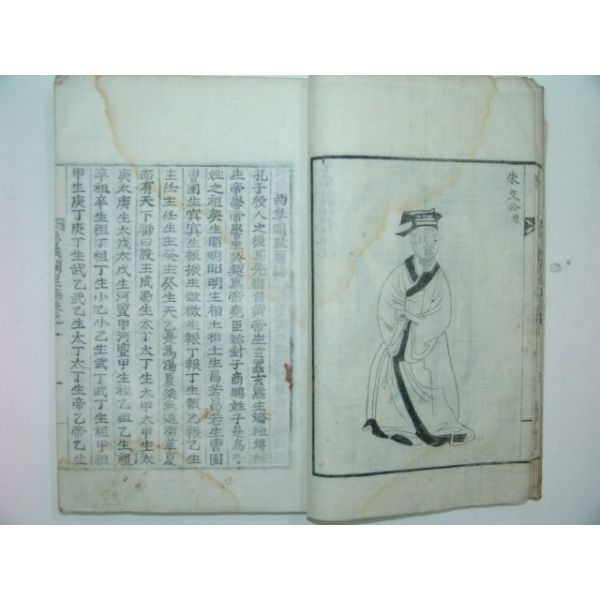 朱文公
孔子殷人之後其先出自黃帝生玄囂玄囂生蟜極蟜極
生帝嚳帝嚳生契契爲帝堯臣始封于商賜姓子是爲子
姓之祖契生昭明昭明生相土相土生昌若昌若生曹圉
曹圉生冥冥生振振生微微生報丁報丁生報乙報乙生
主任主任生主癸主癸生天乙是爲湯夏桀無道湯革夏
而有天下號曰殷王成湯生太丁太丁生太甲太甲生太
庚太庚生太戊太戊生河亶甲河亶甲生祖乙祖乙生祖
辛祖辛生祖丁祖丁生小乙小乙生武丁武丁生祖甲祖
甲生庚丁庚丁生武乙武乙生太丁太丁生帝乙帝乙生